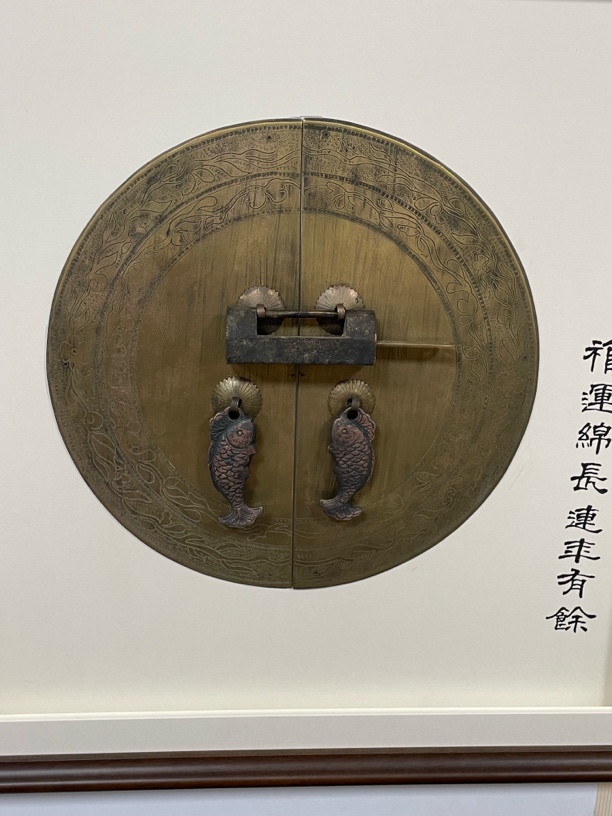 福運綿長連年有餘